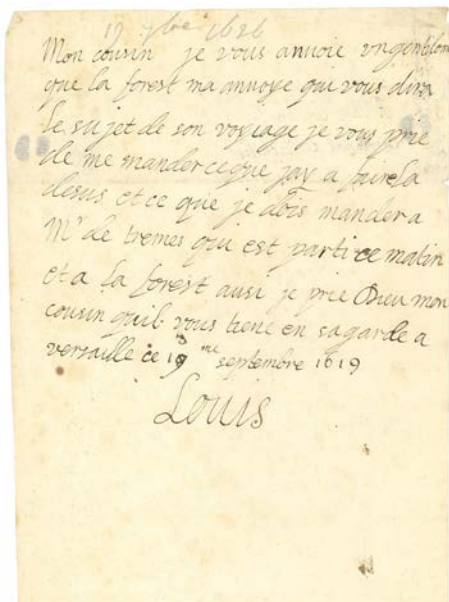 19 7bre 1626
Mon cousin je vous anvoie un gentilom
que la forest ma anvoye qui vous dira
le sujet de son voyage je vous prie
de me mander ce que jay a faire la
desus et ce que je dois mander a
Mr de tremes qui est parti ce matin
et a la forest ausi je prie Dieu mon
cousin quil vous tiene en sa garde a
versaille ce 19 me septembre 1619
Louis